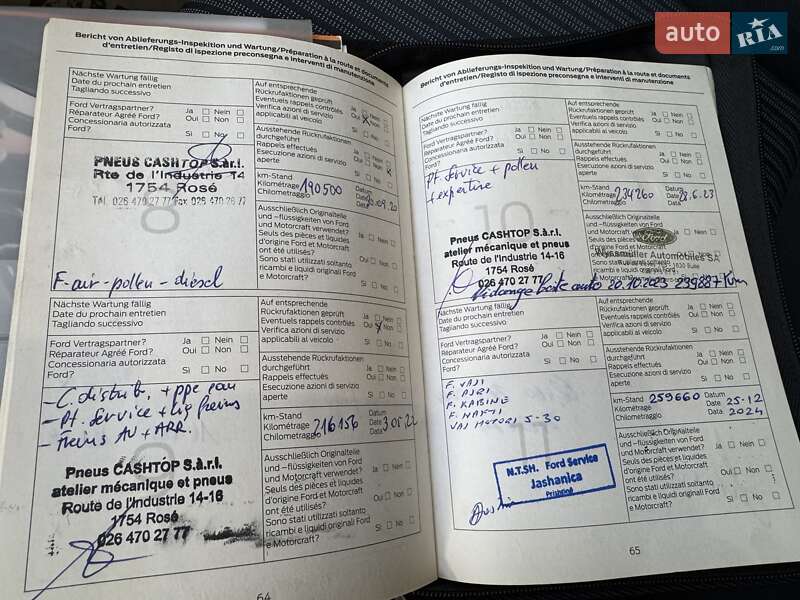 auto RIA
Bericht von Ablieferungs-Inspektion und Wartung/Préparation à la route et documents
d'entretien/Registo di ispezione preconsegna e interventi di manutenzione
Nächste Wartung fällig
Date du prochain entretien
Tagliando successivo
Ford Vertragspartner? Ja Nein
Réparateur Agréé Ford? Oui Non
Concessionaria autorizzata
Ford? Sì No
Auf entsprechende
Rückrufaktionen geprüft Ja Nein
Eventuels rappels contrôlés Oui Non
Verifica azioni di servizio
applicabili al veicolo Sì No
Ausstehende Rückrufaktionen
durchgeführt Ja Nein
Rappels effectués Oui Non
Esecuzione azioni di servizio
aperte Sì No
PNEUS CASHTOP S.à r.l.
Rte de l'Industrie 14
1754 Rosé
Tél. 026 470 27 77 Fax 026 470 26 77
8
km-Stand
Kilométrage 190500
Chilometraggio
Datum
Date
Data .09.20
Ausschließlich Originalteile
und -flüssigkeiten von Ford
und Motorcraft verwendet? Ja Nein
Seuls des pièces et liquides
d'origine Ford et Motorcraft
ont été utilisés? Oui Non
Sono stati utilizzati soltanto
ricambi e liquidi originali Ford
e Motorcraft? Sì No
F-air - pollen - diésel
Nächste Wartung fällig
Date du prochain entretien
Tagliando successivo
Ford Vertragspartner? Ja Nein
Réparateur Agréé Ford? Oui Non
Concessionaria autorizzata
Ford? Sì No
Auf entsprechende
Rückrufaktionen geprüft Ja Nein
Eventuels rappels contrôlés Oui Non
Verifica azioni di servizio
applicabili al veicolo Sì No
Ausstehende Rückrufaktionen
durchgeführt Ja Nein
Rappels effectués Oui Non
Esecuzione azioni di servizio
aperte Sì No
- C. distrib. + ppe eau
- Pt. Service + liq freins
- Freins AV + ARR.
9
km-Stand
Kilométrage 216156
Chilometraggio
Datum
Date
Data 3 05.22
Pneus CASHTOP S.à.r.l.
atelier mécanique et pneus
Route de l'Industrie 14-16
1754 Rosé
026 470 27 77
Ausschließlich Originalteile
und -flüssigkeiten von Ford
und Motorcraft verwendet? Ja Nein
Seuls des pièces et liquides
d'origine Ford et Motorcraft
ont été utilisés? Oui Non
Sono stati utilizzati soltanto
ricambi e liquidi originali Ford
e Motorcraft? Sì No
64
Bericht von Ablieferungs-Inspektion und Wartung/Préparation à la route et documents
d'entretien/Registo di ispezione preconsegna e interventi di manutenzione
Nächste Wartung fällig
Date du prochain entretien
Tagliando successivo
Ford Vertragspartner? Ja Nein
Réparateur Agréé Ford? Oui Non
Concessionaria autorizzata
Ford? Sì No
Auf entsprechende
Rückrufaktionen geprüft Ja Nein
Eventuels rappels contrôlés Oui Non
Verifica azioni di servizio
applicabili al veicolo Sì No
Ausstehende Rückrufaktionen
durchgeführt Ja Nein
Rappels effectués Oui Non
Esecuzione azioni di servizio
aperte Sì No
Pt. Service + pollen
+ expertise
10
km-Stand
Kilométrage 234260
Chilometraggio
Datum
Date 28.6.23
Data
Pneus CASHTOP S.à.r.l.
atelier mécanique et pneus
Route de l'Industrie 14-16
1754 Rosé
026 470 27 77
Ausschließlich Originalteile
und -flüssigkeiten von Ford
und Motorcraft verwendet? Ja
Seuls des pièces et liquides
d'origine Ford et Motorcraft
ont été utilisés?
Sono stati utilizzati soltanto
ricambi e liquidi originali Ford
Ford
Wyssmüller Automobiles SA
Vidange boîte auto 20.10.2023 239887 Km
Nächste Wartung fällig
Date du prochain entretien
Tagliando successivo
Ford Vertragspartner? Ja Nein
Réparateur Agréé Ford? Oui Non
Concessionaria autorizzata
Ford? Sì No
Auf entsprechende
Rückrufaktionen geprüft Ja Nein
Eventuels rappels contrôlés Oui Non
Verifica azioni di servizio
applicabili al veicolo Sì No
Ausstehende Rückrufaktionen
durchgeführt Ja Nein
Rappels effectués Oui Non
Esecuzione azioni di servizio
aperte Sì No
F. VAJI
F. AJRI
F. KABINE
F. NAFTI
VAJ MOTORI 5-30
11
km-Stand
Kilométrage 259660
Chilometraggio
Datum 25-12
Date
Data 2024
N.T.SH. Ford Service
Jashanica
Prishtinë
Ausschließlich Originalteile
und -flüssigkeiten von Ford
und Motorcraft verwendet? Ja Nein
Seuls des pièces et liquides
d'origine Ford et Motorcraft
ont été utilisés? Oui Non
Sono stati utilizzati soltanto
ricambi e liquidi originali Ford
e Motorcraft? Sì No
65